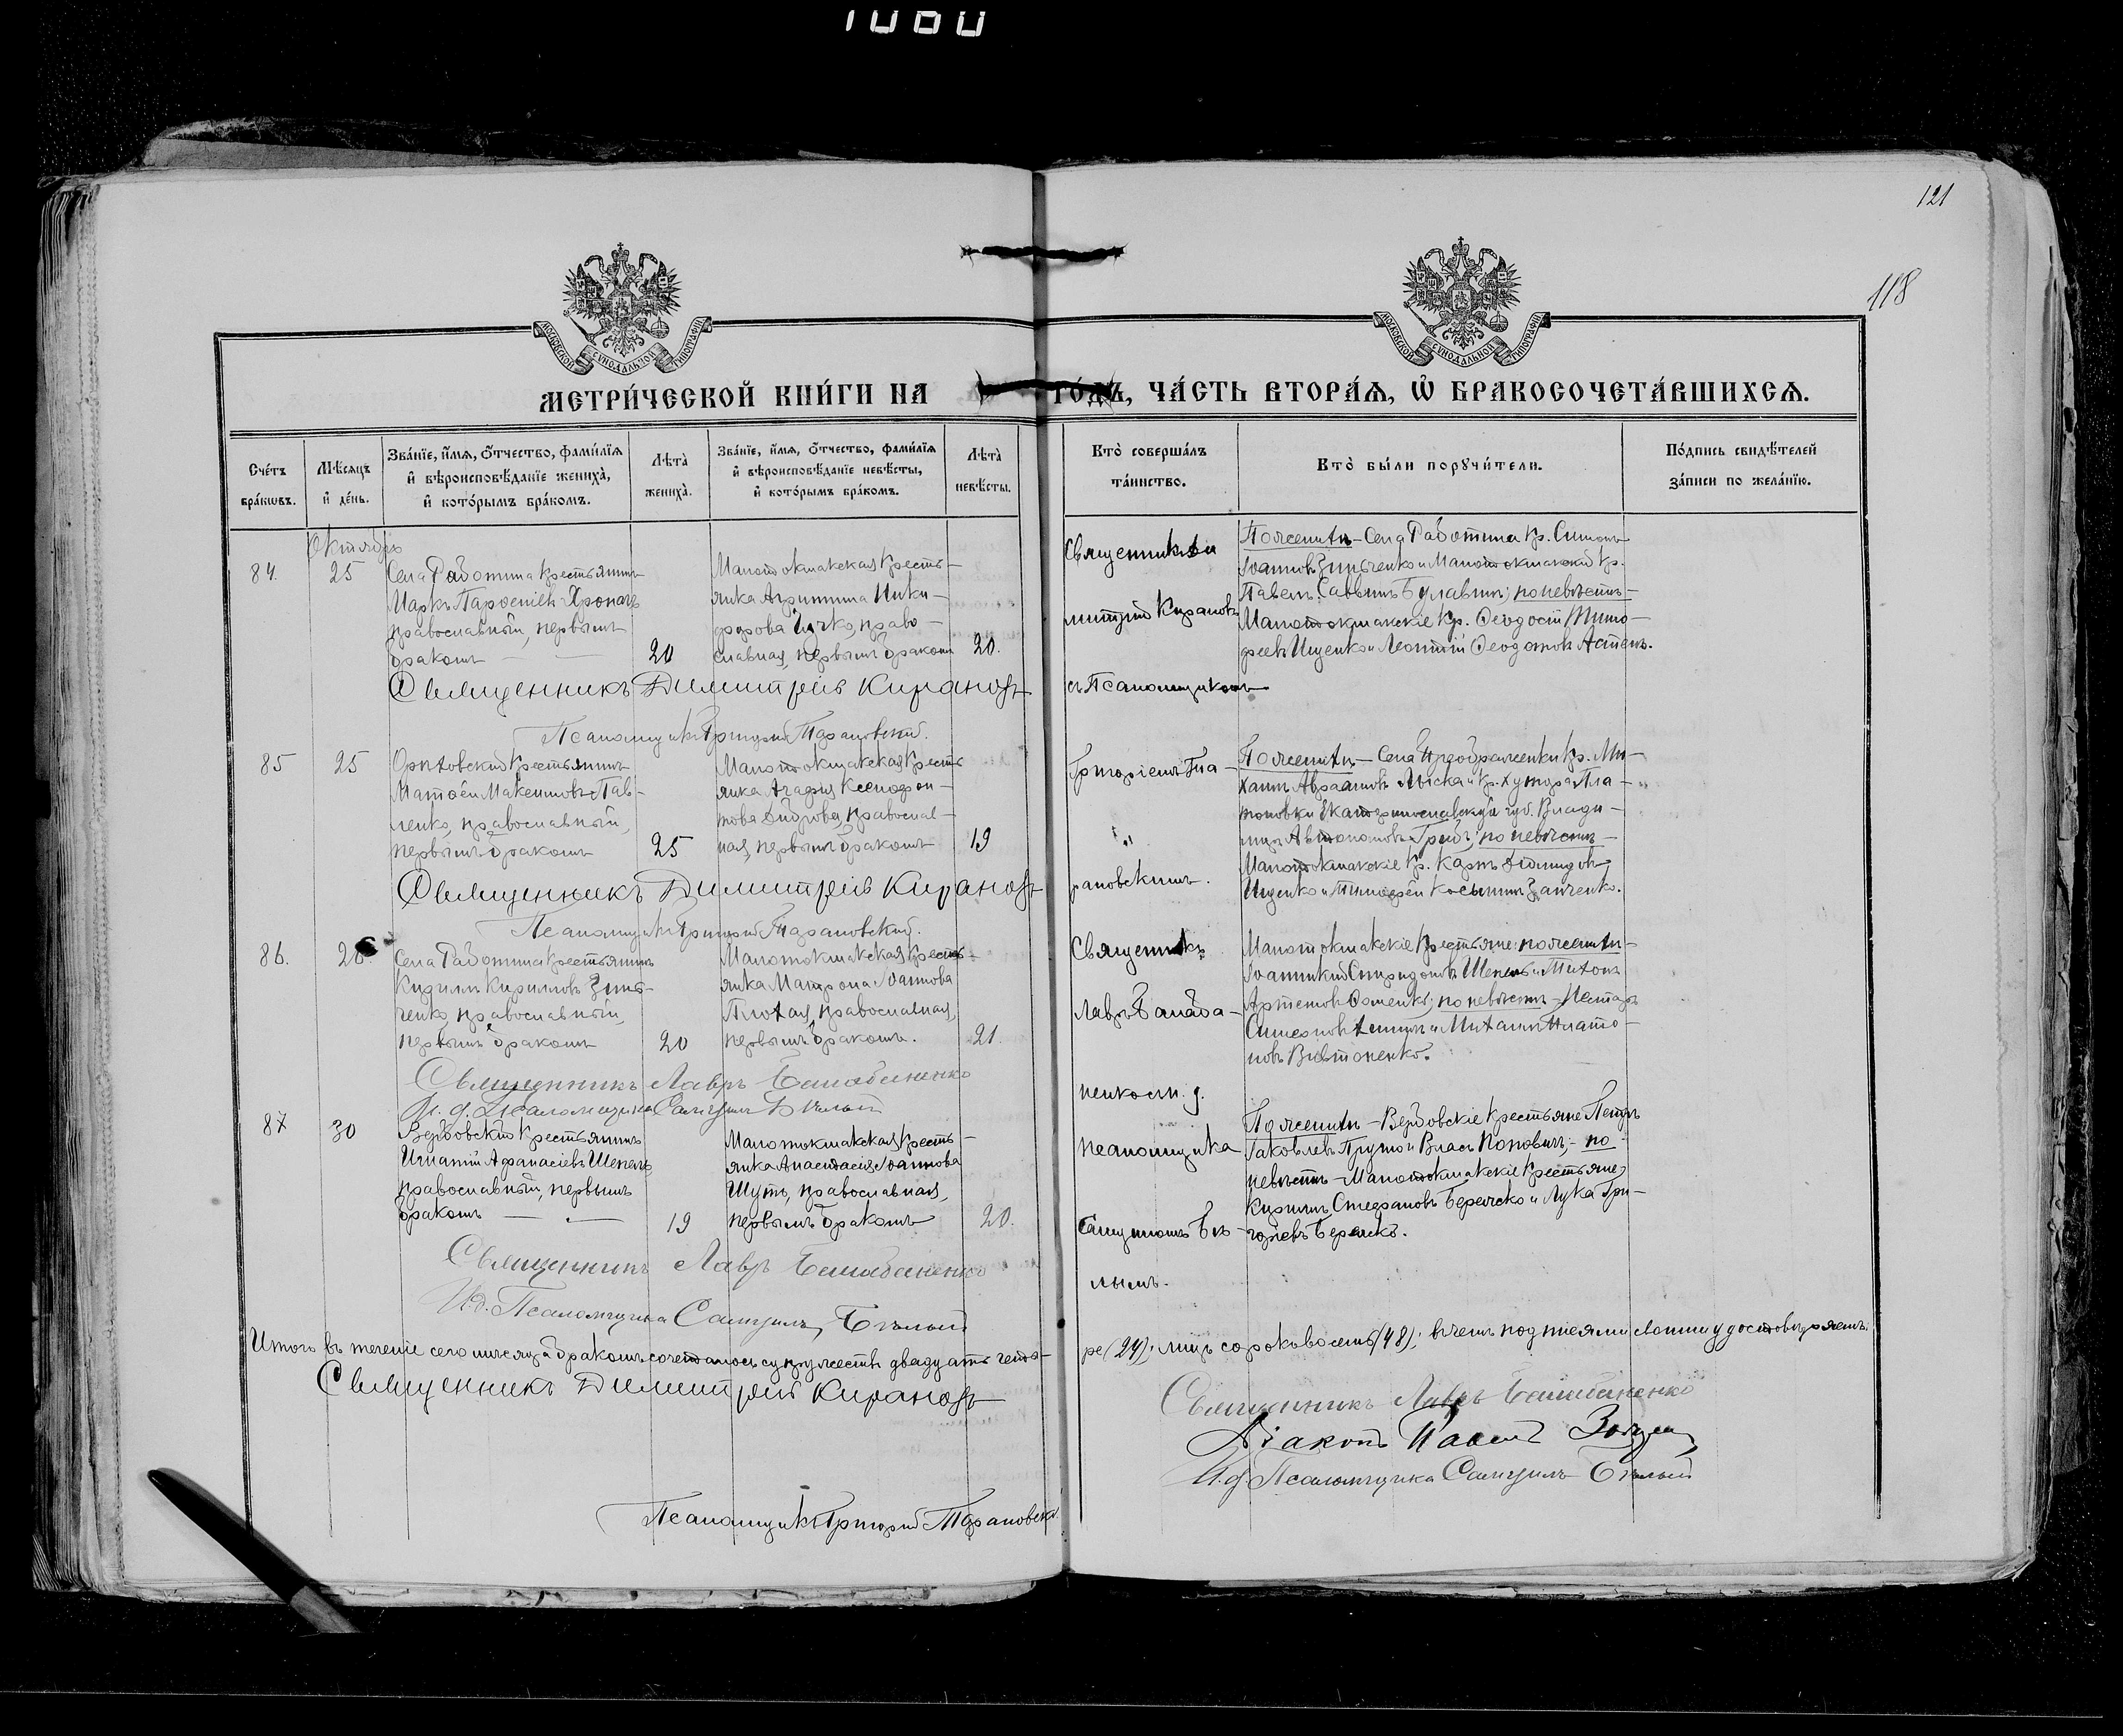 1080
121
118
МОСКОВСКОЙ СѴНОДАЛЬНОЙ ТИПОГРАФІИ
МОСКОВСКОЙ СѴНОДАЛЬНОЙ ТИПОГРАФІИ
МЕТРИ́ЧЕСКОЙ КНИ́ГИ НА
ГО́ДЪ, ЧА́СТЬ ВТОРА́Ѧ, Ѡ҆ БРАКОСОЧЕТА́ВШИХСѦ.
Счетъ бра́кѡвъ.
Мѣ́сѧцъ и҆ де́нь.
Зва́нїе, и҆́мѧ, ѻ҆́тчество, фами́лїѧ и҆ вѣроисповѣ́данїе жениха̀, и҆ кото́рымъ бра́комъ.
Лѣта̀ жениха̀.
Зва́нїе, и҆́мѧ, ѻ҆́тчество, фами́лїѧ и҆ вѣроисповѣ́данїе невѣ́сты, и҆ кото́рымъ бра́комъ.
Лѣта̀ невѣ́сты.
Кто̀ соверша́лъ та́инство.
Кто̀ бы́ли порꙋчи́тели.
По́дпись свидѣ́телей за́писи по жела́нїю.
Октябрь
84.
25
Села Работина крестьянинъ
Маркъ
православный, первымъ
бракомъ
20
Малотокмакская кресть-
янка Агриппина Ники-
форова
право-
славная, первымъ бракомъ
20.
Священникъ Ди-
митрій Кирановъ
съ Псаломщикомъ
По женихѣ – Села Работина кр. Симонъ
Іоанновъ Зинченко и Малотокмакскій кр.
Павелъ Саввинъ Булавинъ; по невѣстѣ –
Малотокмакскіе кр. Ѳеодосій Тимо-
феевъ Ищенко и Леонтій Ѳеодотовъ
Священникъ Димитрій Кирановъ
Псаломщикъ Григорій Тарановскій.
85
25
Орѣховскій крестьянинъ
Матѳей Максимовъ Пав-
ленко, православный,
первымъ бракомъ
25
Малотокмакская кресть-
янка Агафія Ксенофон-
това
православ-
ная, первымъ бракомъ
19
Григоріемъ Та-
рановскимъ.
По женихѣ – Села Преображенки кр. Ми-
хаилъ Авраамовъ
и кр. хутора Пла-
тоновки Екатеринославской губ. Влади-
миръ Автономовъ
по невѣстѣ –
Малотокмакскіе кр. Карпъ
Ищенко и Тимоѳей Косьминъ
Священникъ Димитрій Кирановъ
Псаломщикъ Григорій Тарановскій.
86.
26
Села Работина крестьянинъ
Кириллъ Кирилловъ Зин-
ченко, православный,
первымъ бракомъ
20
Малотокмакская кресть-
янка Матрона Іоаннова
Плохая, православная,
первымъ бракомъ.
21.
Священникъ
Лавръ Балаба-
ненко съ и. д.
псаломщика
Самуиломъ Бѣ-
лымъ.
Малотокмакскіе крестьяне: по женихѣ –
Іоанникій Спиридоновъ Шепель и Тихонъ
Артемовъ
по невѣстѣ – Несторъ
и Михаилъ Плато-
новъ
Священникъ Лавръ Балабаненко
И. д. Псаломщика Самуилъ Бѣлый
87
30
Вербовскій крестьянинъ
Игнатій Афанасіевъ Шепель
православный, первымъ
бракомъ
19
Малотокмакская кресть-
янка Анастасія Іоаннова
Шутъ, православная,
первымъ бракомъ
20.
По женихѣ – Вербовскіе крестьяне Петръ
Іаковлевъ
и Власъ Поповичъ; – по
невѣстѣ – Малотокмакскіе крестьяне,
Кириллъ Стефановъ
и Лука Гри-
горіевъ
Священникъ Лавръ Балабаненко
И. д. Псаломщика Самуилъ Бѣлый
Итого въ теченіе сего мѣсяца бракомъ сочеталось супружествъ двадцать четы-
ре (24); лицъ сорокъ восемь (48); въ чемъ подписями своими удостовѣряемъ:
Священникъ Димитрій Кирановъ
Священникъ Лавръ Балабаненко
Діаконъ Павелъ
И. д. Псаломщика Самуилъ Бѣлый
Псаломщикъ Григорій Тарановскій